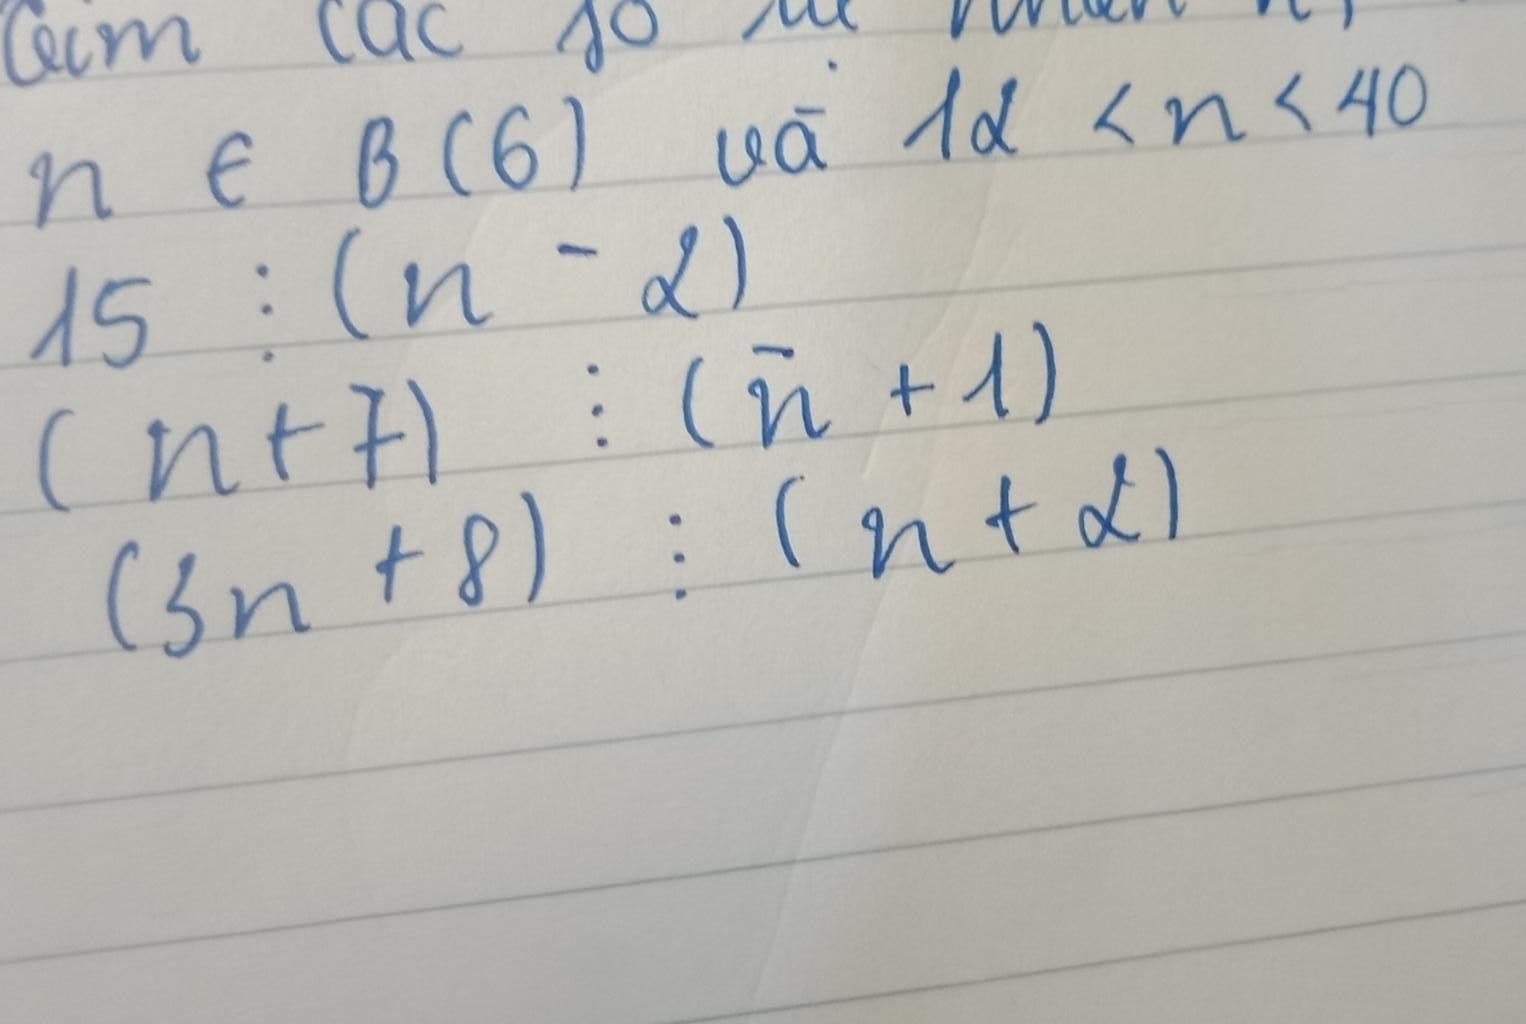 các số
n ∈ B(6) và 12 < n < 40
15 ⋮ (n - 2)
(n+7) ⋮ (n + 1)
(3n + 8) ⋮ (n + 2)